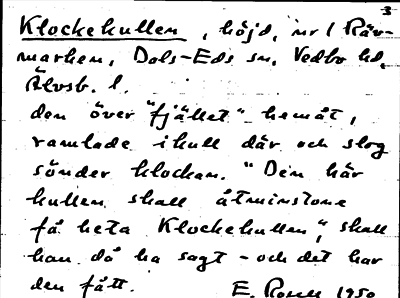 3
Klockekullen, höjd, nr 1 Räv-
marken, Dals-Eds sn, Vedbo hd,
Älvsb. l.
den över "fjället" hemåt,
ramlade ikull där och slog
sönder klockan. "Den här
kullen skall åtminstone
få heta Klockekullen", skall
han då ha sagt - och det har
den fått.
E. 1950